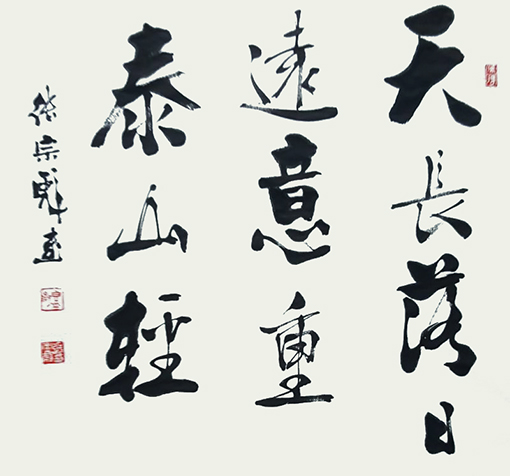 天長落日
遠意重
泰山輕
宗彪書